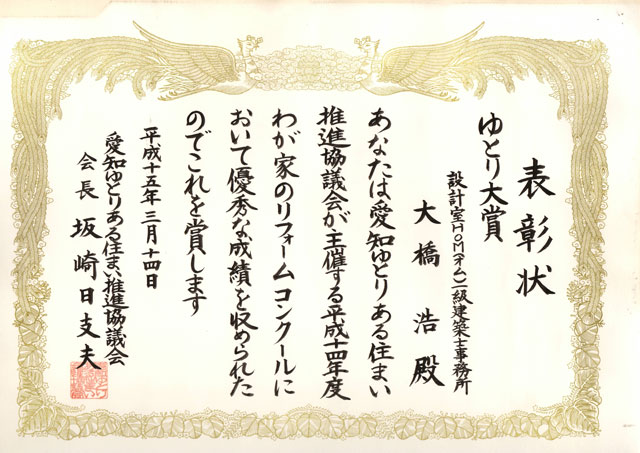 表彰状
ゆとり大賞
設計室HOM(ホーム)二級建築士事務所
大橋 浩 殿
あなたは愛知ゆとりある住まい
推進協議会が主催する平成十四年度
わが家のリフォームコンクールに
おいて優秀な成績を収められた
のでこれを賞します
平成十五年三月十四日
愛知ゆとりある住まい推進協議会
会長 坂崎日支夫